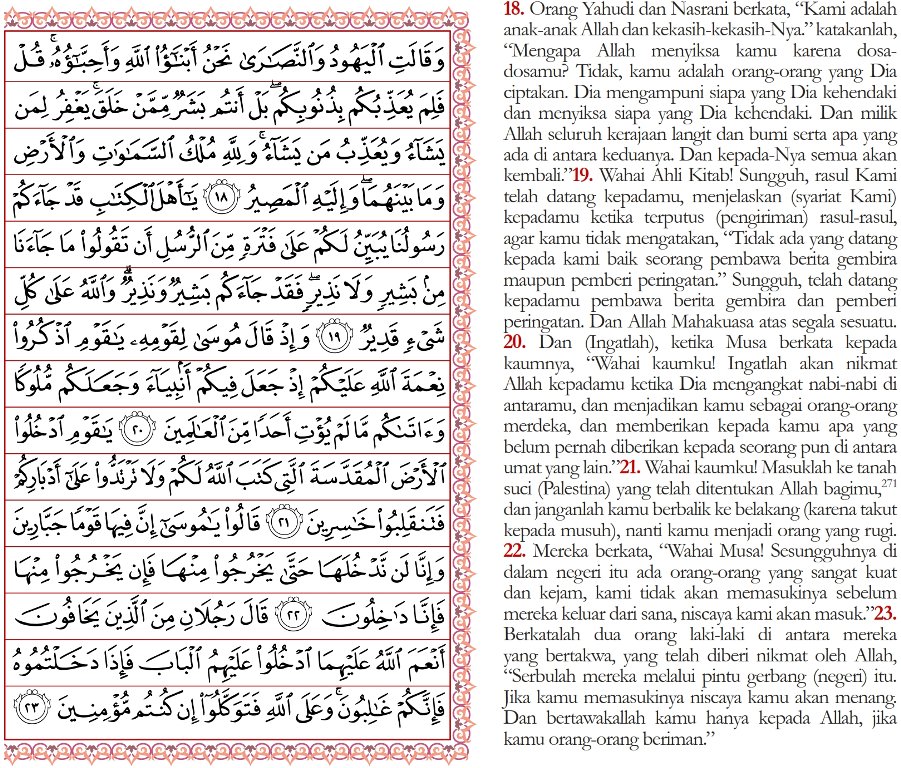 وَقَالَتِ الْيَهُودُ وَالنَّصَارَىٰ نَحْنُ أَبْنَاؤُا اللَّهِ وَأَحِبَّاؤُهُ ۚ قُلْ
فَلِمَ يُعَذِّبُكُم بِذُنُوبِكُم ۖ بَلْ أَنتُم بَشَرٌ مِّمَّنْ خَلَقَ ۚ يَغْفِرُ لِمَن
يَشَاءُ وَيُعَذِّبُ مَن يَشَاءُ ۚ وَلِلَّهِ مُلْكُ السَّمَاوَاتِ وَالْأَرْضِ
وَمَا بَيْنَهُمَا ۖ وَإِلَيْهِ الْمَصِيرُ ١٨ يَا أَهْلَ الْكِتَابِ قَدْ جَاءَكُمْ
رَسُولُنَا يُبَيِّنُ لَكُمْ عَلَىٰ فَتْرَةٍ مِّنَ الرُّسُلِ أَن تَقُولُوا مَا جَاءَنَا
مِن بَشِيرٍ وَلَا نَذِيرٍ ۖ فَقَدْ جَاءَكُم بَشِيرٌ وَنَذِيرٌ ۗ وَاللَّهُ عَلَىٰ كُلِّ
شَيْءٍ قَدِيرٌ ١٩ وَإِذْ قَالَ مُوسَىٰ لِقَوْمِهِ يَا قَوْمِ اذْكُرُوا
نِعْمَةَ اللَّهِ عَلَيْكُمْ إِذْ جَعَلَ فِيكُمْ أَنبِيَاءَ وَجَعَلَكُم مُّلُوكًا
وَءَاتَاكُم مَّا لَمْ يُؤْتِ أَحَدًا مِّنَ الْعَالَمِينَ ٢٠ يَا قَوْمِ ادْخُلُوا
الْأَرْضَ الْمُقَدَّسَةَ الَّتِي كَتَبَ اللَّهُ لَكُمْ وَلَا تَرْتَدُّوا عَلَىٰ أَدْبَارِكُمْ
فَتَنقَلِبُوا خَاسِرِينَ ٢١ قَالُوا يَا مُوسَىٰ إِنَّ فِيهَا قَوْمًا جَبَّارِينَ
وَإِنَّا لَن نَّدْخُلَهَا حَتَّىٰ يَخْرُجُوا مِنْهَا فَإِن يَخْرُجُوا مِنْهَا
فَإِنَّا دَاخِلُونَ ٢٢ قَالَ رَجُلَانِ مِنَ الَّذِينَ يَخَافُونَ
أَنْعَمَ اللَّهُ عَلَيْهِمَا ادْخُلُوا عَلَيْهِمُ الْبَابَ فَإِذَا دَخَلْتُمُوهُ
فَإِنَّكُمْ غَالِبُونَ ۚ وَعَلَى اللَّهِ فَتَوَكَّلُوا إِن كُنتُم مُّؤْمِنِينَ ٢٣
18. Orang Yahudi dan Nasrani berkata, “Kami adalah
anak-anak Allah dan kekasih-kekasih-Nya.” katakanlah,
“Mengapa Allah menyiksa kamu karena dosa-
dosamu? Tidak, kamu adalah orang-orang yang Dia
ciptakan. Dia mengampuni siapa yang Dia kehendaki
dan menyiksa siapa yang Dia kehendaki. Dan milik
Allah seluruh kerajaan langit dan bumi serta apa yang
ada di antara keduanya. Dan kepada-Nya semua akan
kembali.”19. Wahai Ahli Kitab! Sungguh, rasul Kami
telah datang kepadamu, menjelaskan (syariat Kami)
kepadamu ketika terputus (pengiriman) rasul-rasul,
agar kamu tidak mengatakan, “Tidak ada yang datang
kepada kami baik seorang pembawa berita gembira
maupun pemberi peringatan.” Sungguh, telah datang
kepadamu pembawa berita gembira dan pemberi
peringatan. Dan Allah Mahakuasa atas segala sesuatu.
20. Dan (Ingatlah), ketika Musa berkata kepada
kaumnya, “Wahai kaumku! Ingatlah akan nikmat
Allah kepadamu ketika Dia mengangkat nabi-nabi di
antaramu, dan menjadikan kamu sebagai orang-orang
merdeka, dan memberikan kepada kamu apa yang
belum pernah diberikan kepada seorang pun di antara
umat yang lain.”21. Wahai kaumku! Masuklah ke tanah
suci (Palestina) yang telah ditentukan Allah bagimu,271
dan janganlah kamu berbalik ke belakang (karena takut
kepada musuh), nanti kamu menjadi orang yang rugi.
22. Mereka berkata, “Wahai Musa! Sesungguhnya di
dalam negeri itu ada orang-orang yang sangat kuat
dan kejam, kami tidak akan memasukinya sebelum
mereka keluar dari sana, niscaya kami akan masuk.”23.
Berkatalah dua orang laki-laki di antara mereka
yang bertakwa, yang telah diberi nikmat oleh Allah,
“Serbulah mereka melalui pintu gerbang (negeri) itu.
Jika kamu memasukinya niscaya kamu akan menang.
Dan bertawakallah kamu hanya kepada Allah, jika
kamu orang-orang beriman.”